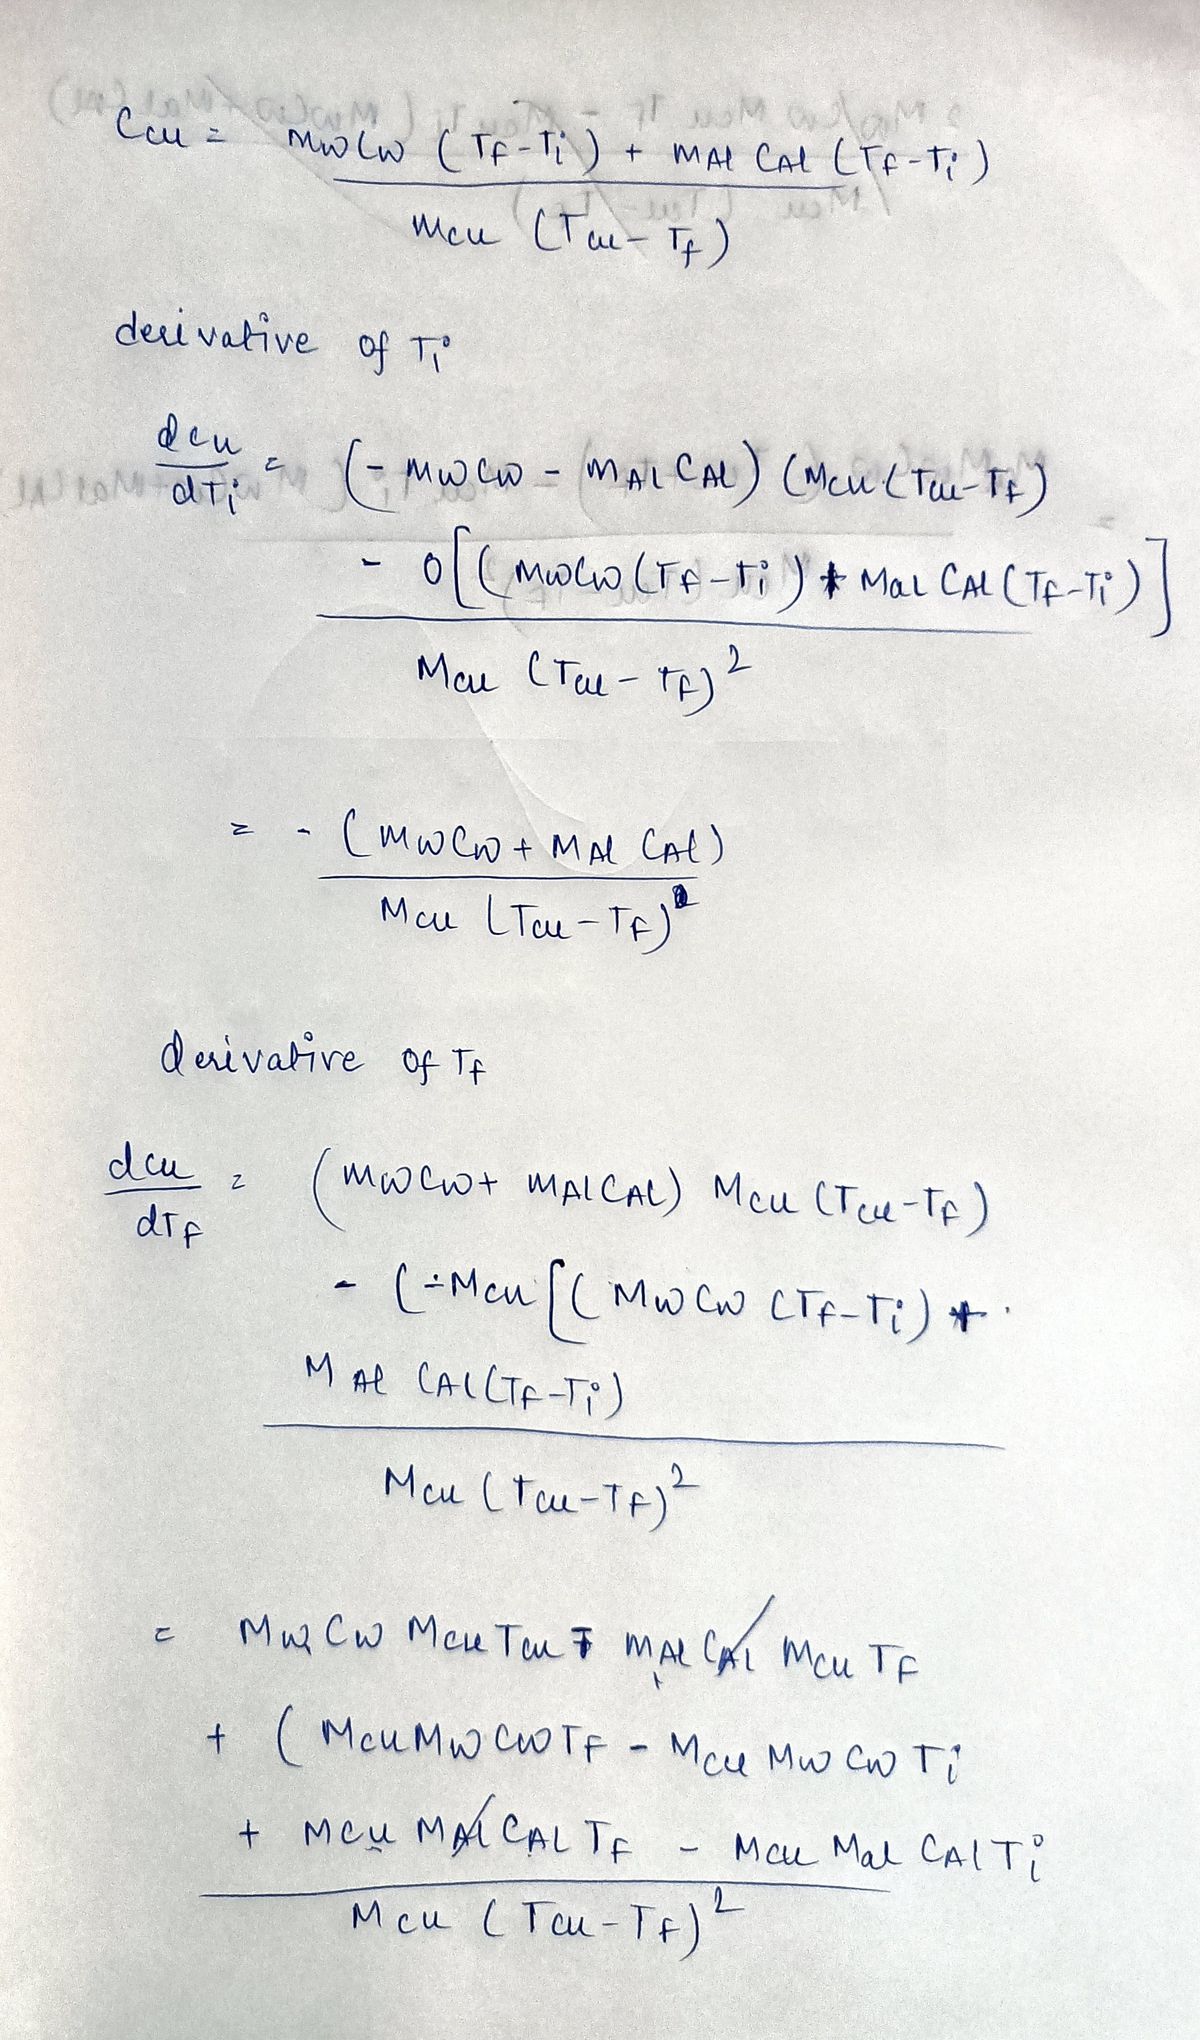 Ccu = mwCw (Tf-Ti) + mAl CAl (Tf-Ti)
mcu (Tcu - Tf)
derivative of Ti
dcu
dTi
= (- mwcw - mAl CAl) (Mcu (Tcu-Tf)
- 0[(mwcw (Tf-Ti) + Mal CAl (Tf-Ti)]
Mcu (Tcu - Tf)²
= - (mwcw + MAl CAl)
Mcu (Tcu - Tf)
Derivative of Tf
dcu
dTf
= (mwcw + mAl CAl) Mcu (Tcu-Tf)
- (-Mcu [(Mwcw (Tf-Ti) +
MAl CAl (Tf-Ti)
Mcu (Tcu-Tf)²
= Mw Cw Mcu Tcu mAl CAl Mcu Tf
+ (Mcu Mw Cw Tf - Mcu Mw Cw Ti
+ Mcu MAl CAl Tf - Mcu Mal CAl Ti
Mcu (Tcu-Tf)²